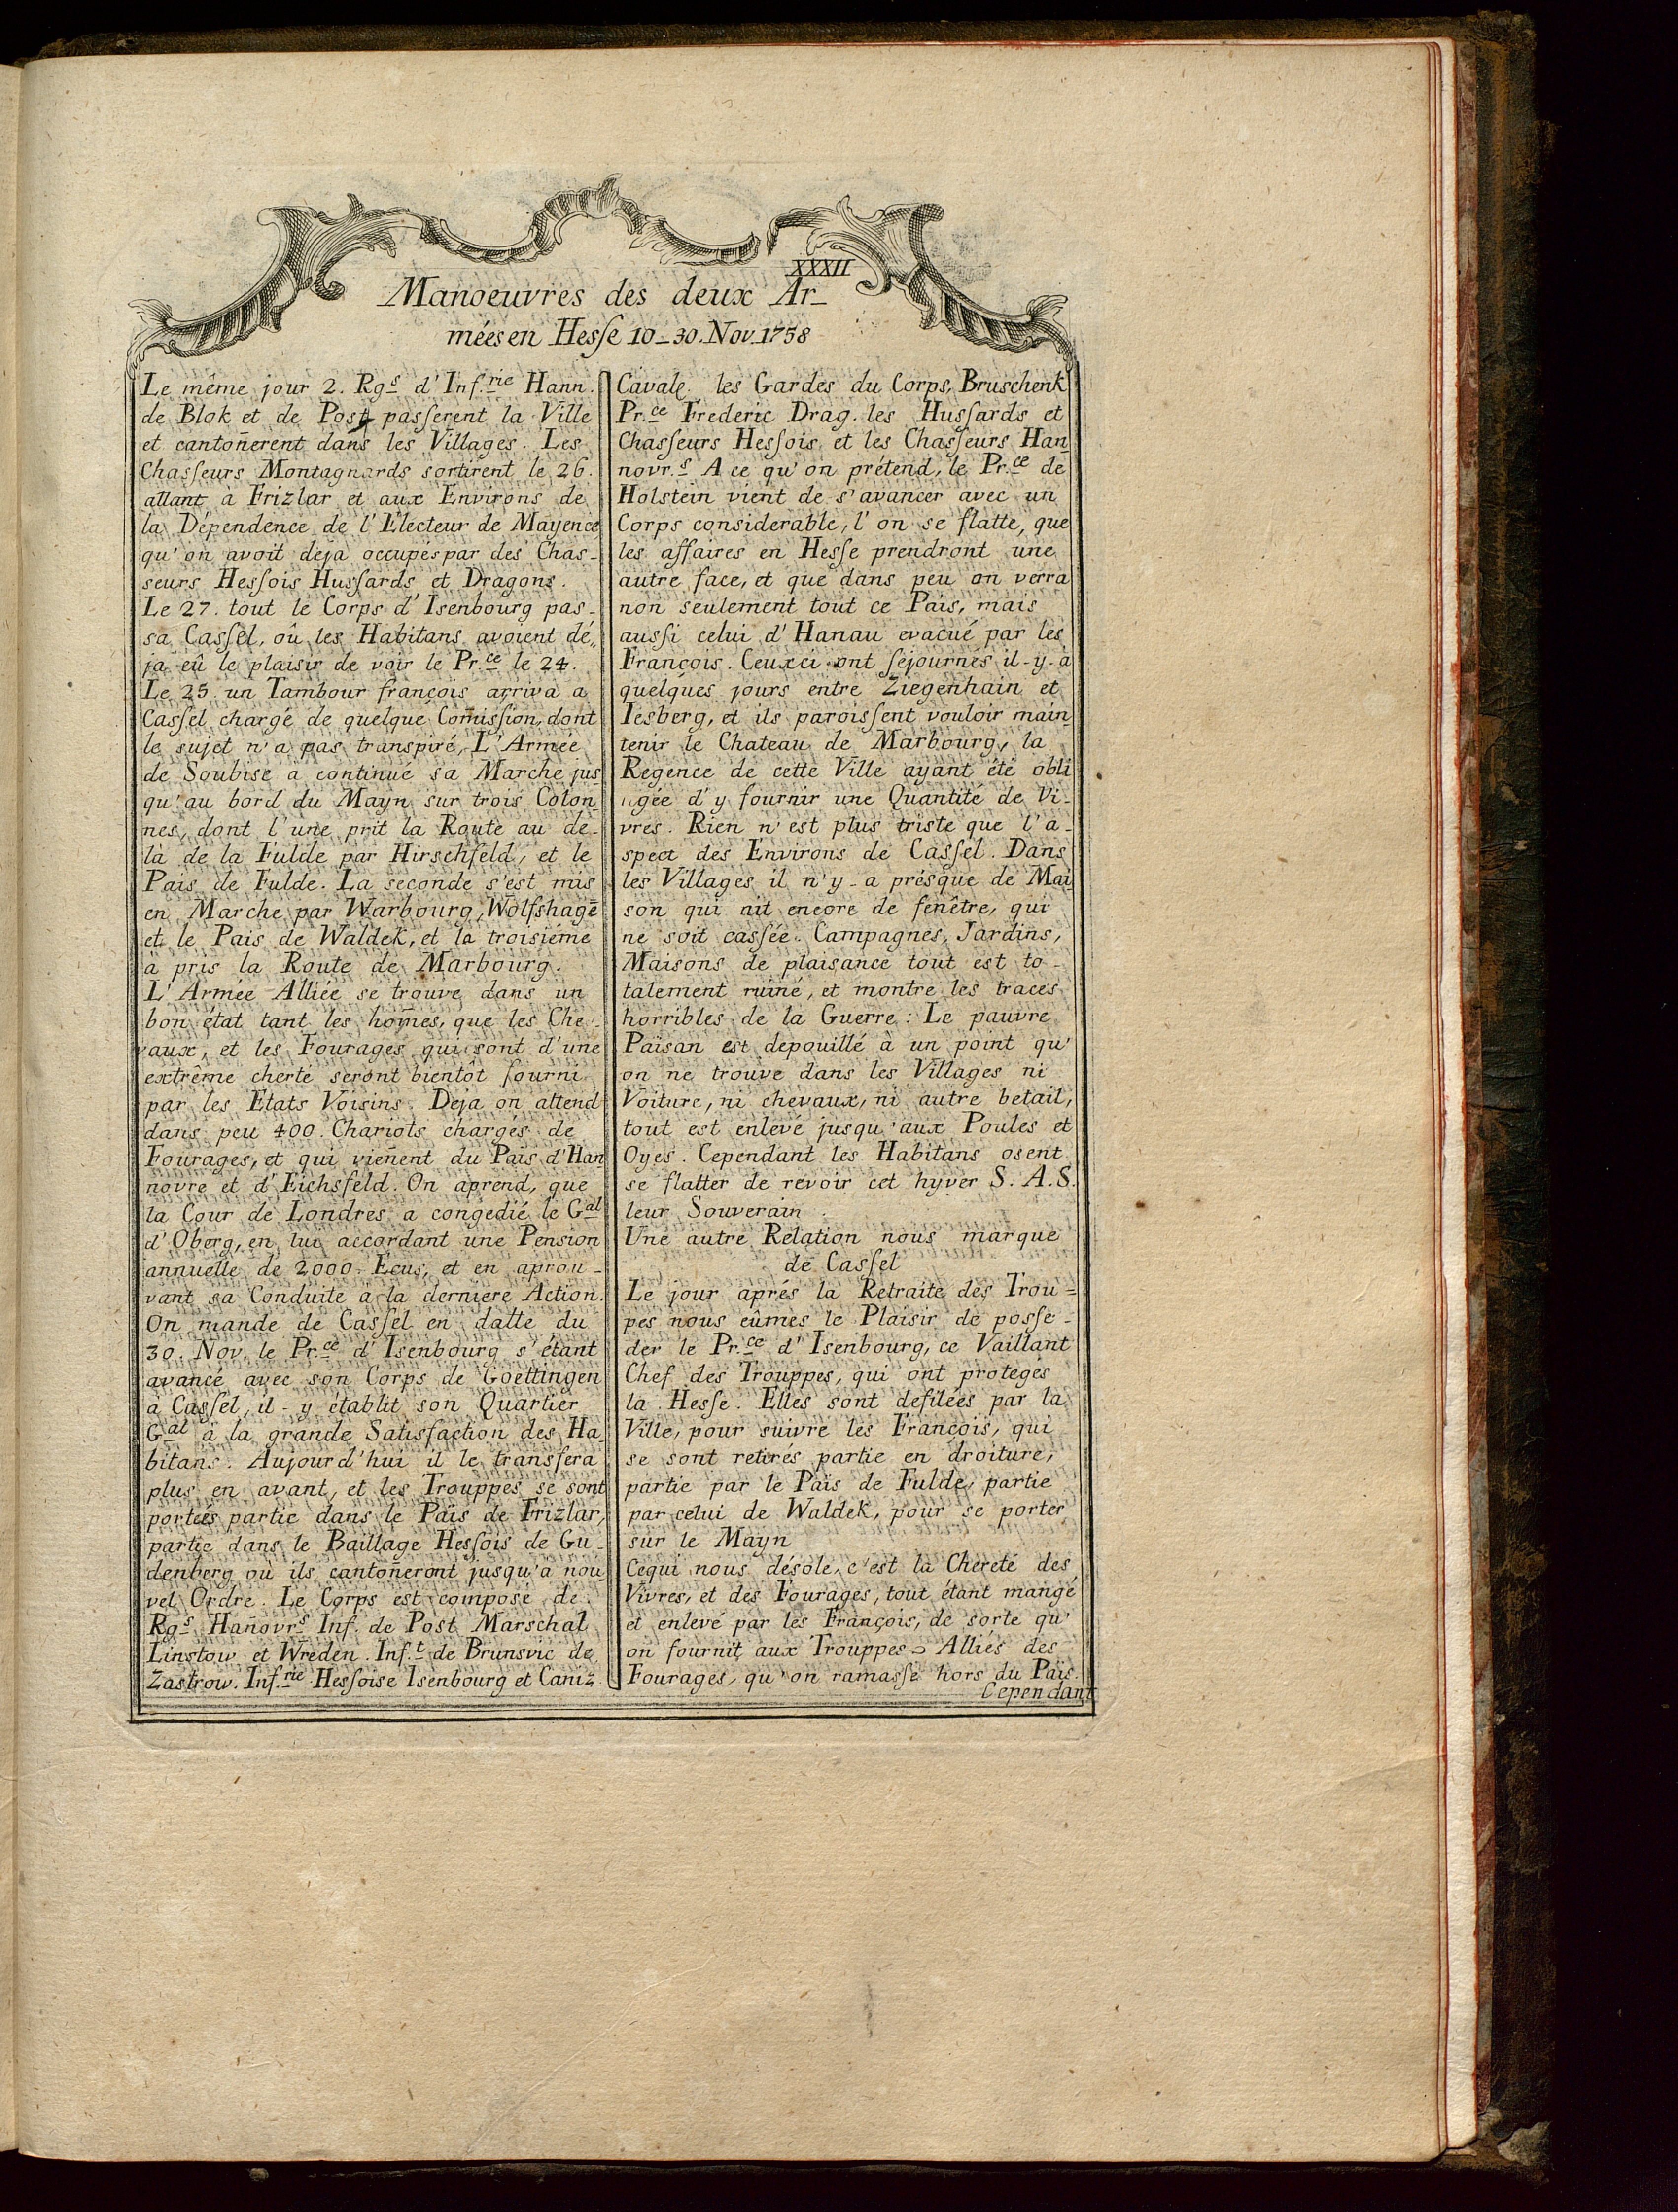 XXXII
Manoeuvres des deux Ar_
mées en Hesſe 10_30. Nov. 1758
Le même jour 2. Rgs d'Inf.rie Hann.
de Blok et de Post paſserent la Ville
et cantoñerent dans les Villages. Les
Chaſseurs Montagnards sortirent le 26.
allant à Frizlar et aux Environs de
la Dépendence de l'Electeur de Mayence
qu'on avoit deja occupés par des Chas_
seurs Heſsois Huſsards et Dragons.
Le 27. tout le Corps d'Isenbourg pas_
sa Caſsel, oû les Habitans avoient dé„
ja eû le plaisir de voir le Pr.ce le 24.
Le 25. un Tambour françois arriva a
Caſsel chargé de quelque Com̃iſsion, dont
le sujet n'a pas transpiré, L'Armée
de Soubise a continué sa Marche jus
qu'au bord du Mayn sur trois Colon_
nes, dont l'une prit la Route au de_
là de la Fulde par Hirschfeld, et le
Pais de Fulde. La seconde s'est mis
en Marche par Warbourg, Wolfshagē
et le Pais de Waldek, et la troisiéme
à pris la Route de Marbourg.
L'Armée Alliée se trouve dans un
bon état tant les hom̃es, que les Che_
vaux, et les Fourages qui sont d'une
extrême cherté seront bientôt fourni
par les Etats Voisins. Deja on attend
dans peu 400. Chariots chargés de
Fourages, et qui vieñent du Païs d'Han_
novre et d'Eichsfeld. On aprend, que
la Cour de Londres a congedié le Gal
d'Oberg, en lui accordant une Pension
annuelle de 2000. Ecus, et en aprou_
vant sa Conduite à la derniere Action.
On mande de Caſsel en datte du
30. Nov. le Pr.ce d'Isenbourg s'étant
avancé avec son Corps de Goettingen
a Caſsel, il-y établit son Quartier
Gal à la grande Satisfaction des Ha_
bitans. Aujourd'hui il le transfera
plus en avant, et les Trouppes se sont
portées partie dans le Païs de Frizlar,
partie dans le Baillage Heſsois de Gu_
denberg où ils cantoñeront jusqu'a nou
vel Ordre. Le Corps est composé de
Rgs Hañovrs Inf. de Post Marschal
Linstow et Wreden. Inf.t de Brunsvic de
Zastrow. Inf.rie Heſsoise Isenbourg et Caniz.
Cavale. les Gardes du Corps, Bruschenk
Pr.ce Frederic Drag. les Huſsards et
Chaſseurs Heſsois et les Chaſseurs Han_
novr.s A ce qu'on prétend, le Pr.ce de
Holstein vient de s'avancer avec un
Corps considerable, l'on se flatte, que
les affaires en Heſse prendront une
autre face, et que dans peu on verra
non seulement tout ce Pais, mais
auſsi celui d'Hanau evacué par les
François. Ceuxci ont ſéjournés il-y-a
quelques jours entre Ziegenhain et
Iesberg, et ils paroiſsent vouloir main_
tenir le Chateau de Marbourg, la
Regence de cette Ville ayant été obli
„gée d'y fournir une Quantité de Vi_
vres. Rien n'est plus triste que l'a_
spect des Environs de Caſsel. Dans
les Villages il n'y-a présque de Mai
son qui ait encore de fenêtre, qui
ne soit caſsée. Campagnes, Jardins,
Maisons de plaisance tout est to_
talement ruiné, et montre les traces
horribles de la Guerre: Le pauvre
Païsan est depouillé à un point qu'
on ne trouve dans les Villages ni
Voiture, ni chevaux, ni autre betail,
tout est enlevé jusqu'aux Poules et
Oyes. Cependant les Habitans osent
se flatter de revoir cet hyver S. A. S.
leur Souverain.
Une autre Relation nous marque
de Caſsel
Le jour aprés la Retraite des Trou=
pes nous eûmes le Plaisir de poſse_
der le Pr.ce d'Isenbourg, ce Vaillant
Chef des Trouppes, qui ont protegés
la Heſse. Elles sont defilées par la
Ville, pour suivre les François, qui
se sont retirés partie en droiture,
partie par le Païs de Fulde, partie
par celui de Waldek, pour se porter
sur le Mayn
Cequi nous désole, c'est la Chereté des
Vivres, et des Fourages, tout étant mangé
et enlevé par les François, de sorte qu'
on fournit aux Trouppes Alliés des
Fourages, qu'on ramaſse hors du Païs.
Cependant